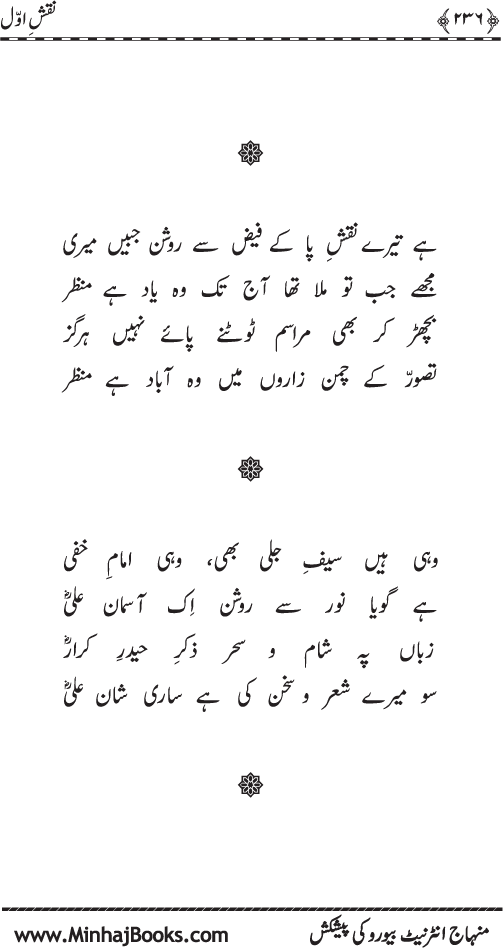 ﴿۲۳۶﴾ نقشِ اوّل
ہے تیرے نقشِ پا کے فیض سے روشن جبیں میری
مجھے جب تو ملا تھا آج تک وہ یاد ہے منظر
بچھڑ کر بھی مراسم ٹوٹنے پائے نہیں ہرگز
تصورّ کے چمن زاروں میں وہ آباد ہے منظر
وہی ہیں سیفِ جلی بھی، وہی امامِ خفی
ہے گویا نور سے روشن اِک آسمان علیؓ
زباں پہ شام و سحر ذکرِ حیدرِ کرارؓ
سو میرے شعر و سخن کی ہے ساری شان علیؓ
منہاج انٹرنیٹ بیورو کی پیشکش www.MinhajBooks.com